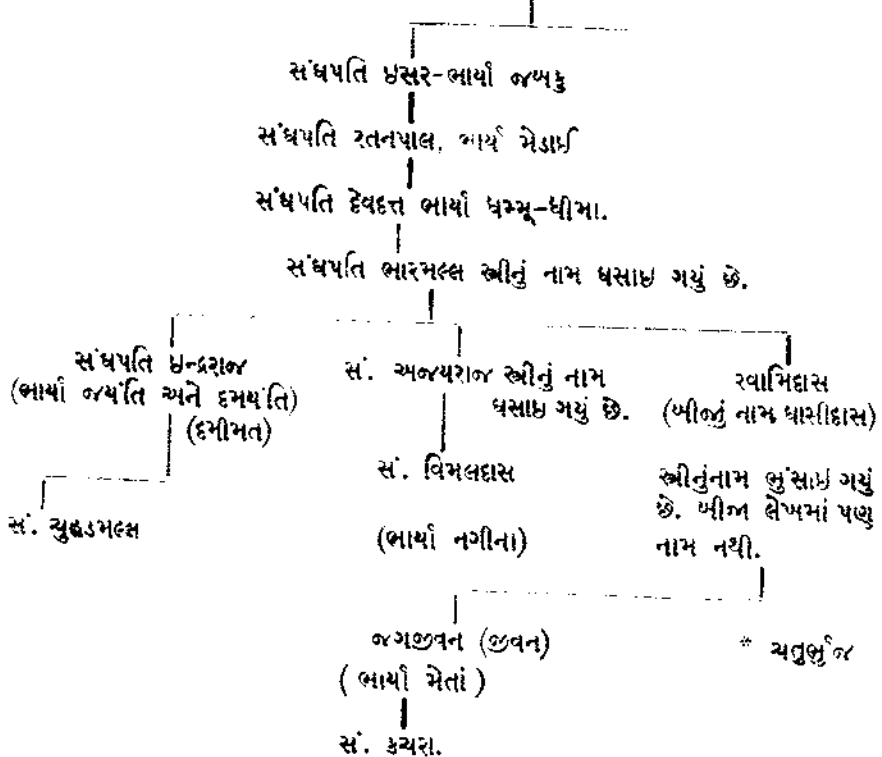 સંઘપતિ ઇસર-ભાર્યા જબકુ
સંઘપતિ રતનપાલ, ભાર્યા મેડાઈ
સંઘપતિ દેવદત્ત ભાર્યા ધમ્મૂ-ધીમા.
સંઘપતિ ભારમલ્લ સ્ત્રીનું નામ ઘસાઇ ગયું છે.
સંઘપતિ ઇન્દ્રરાજ
(ભાર્યા જયંતિ અને દમયંતિ)
(દમીમત)
સં. અજયરાજ સ્ત્રીનું નામ
ઘસાઇ ગયું છે.
સ્વામિદાસ
(બીજું નામ ઘાસીદાસ)
સં. ચુહડમલ્લ
સં. વિમલદાસ
(ભાર્યા નગીના)
સ્ત્રીનુંનામ ભુંસાઇ ગયું
છે. બીજા લેખમાં પણ
નામ નથી.
જગજીવન (જીવન)
( ભાર્યા મેતાં )
* ચતુર્ભુજ
સં. કચરા.